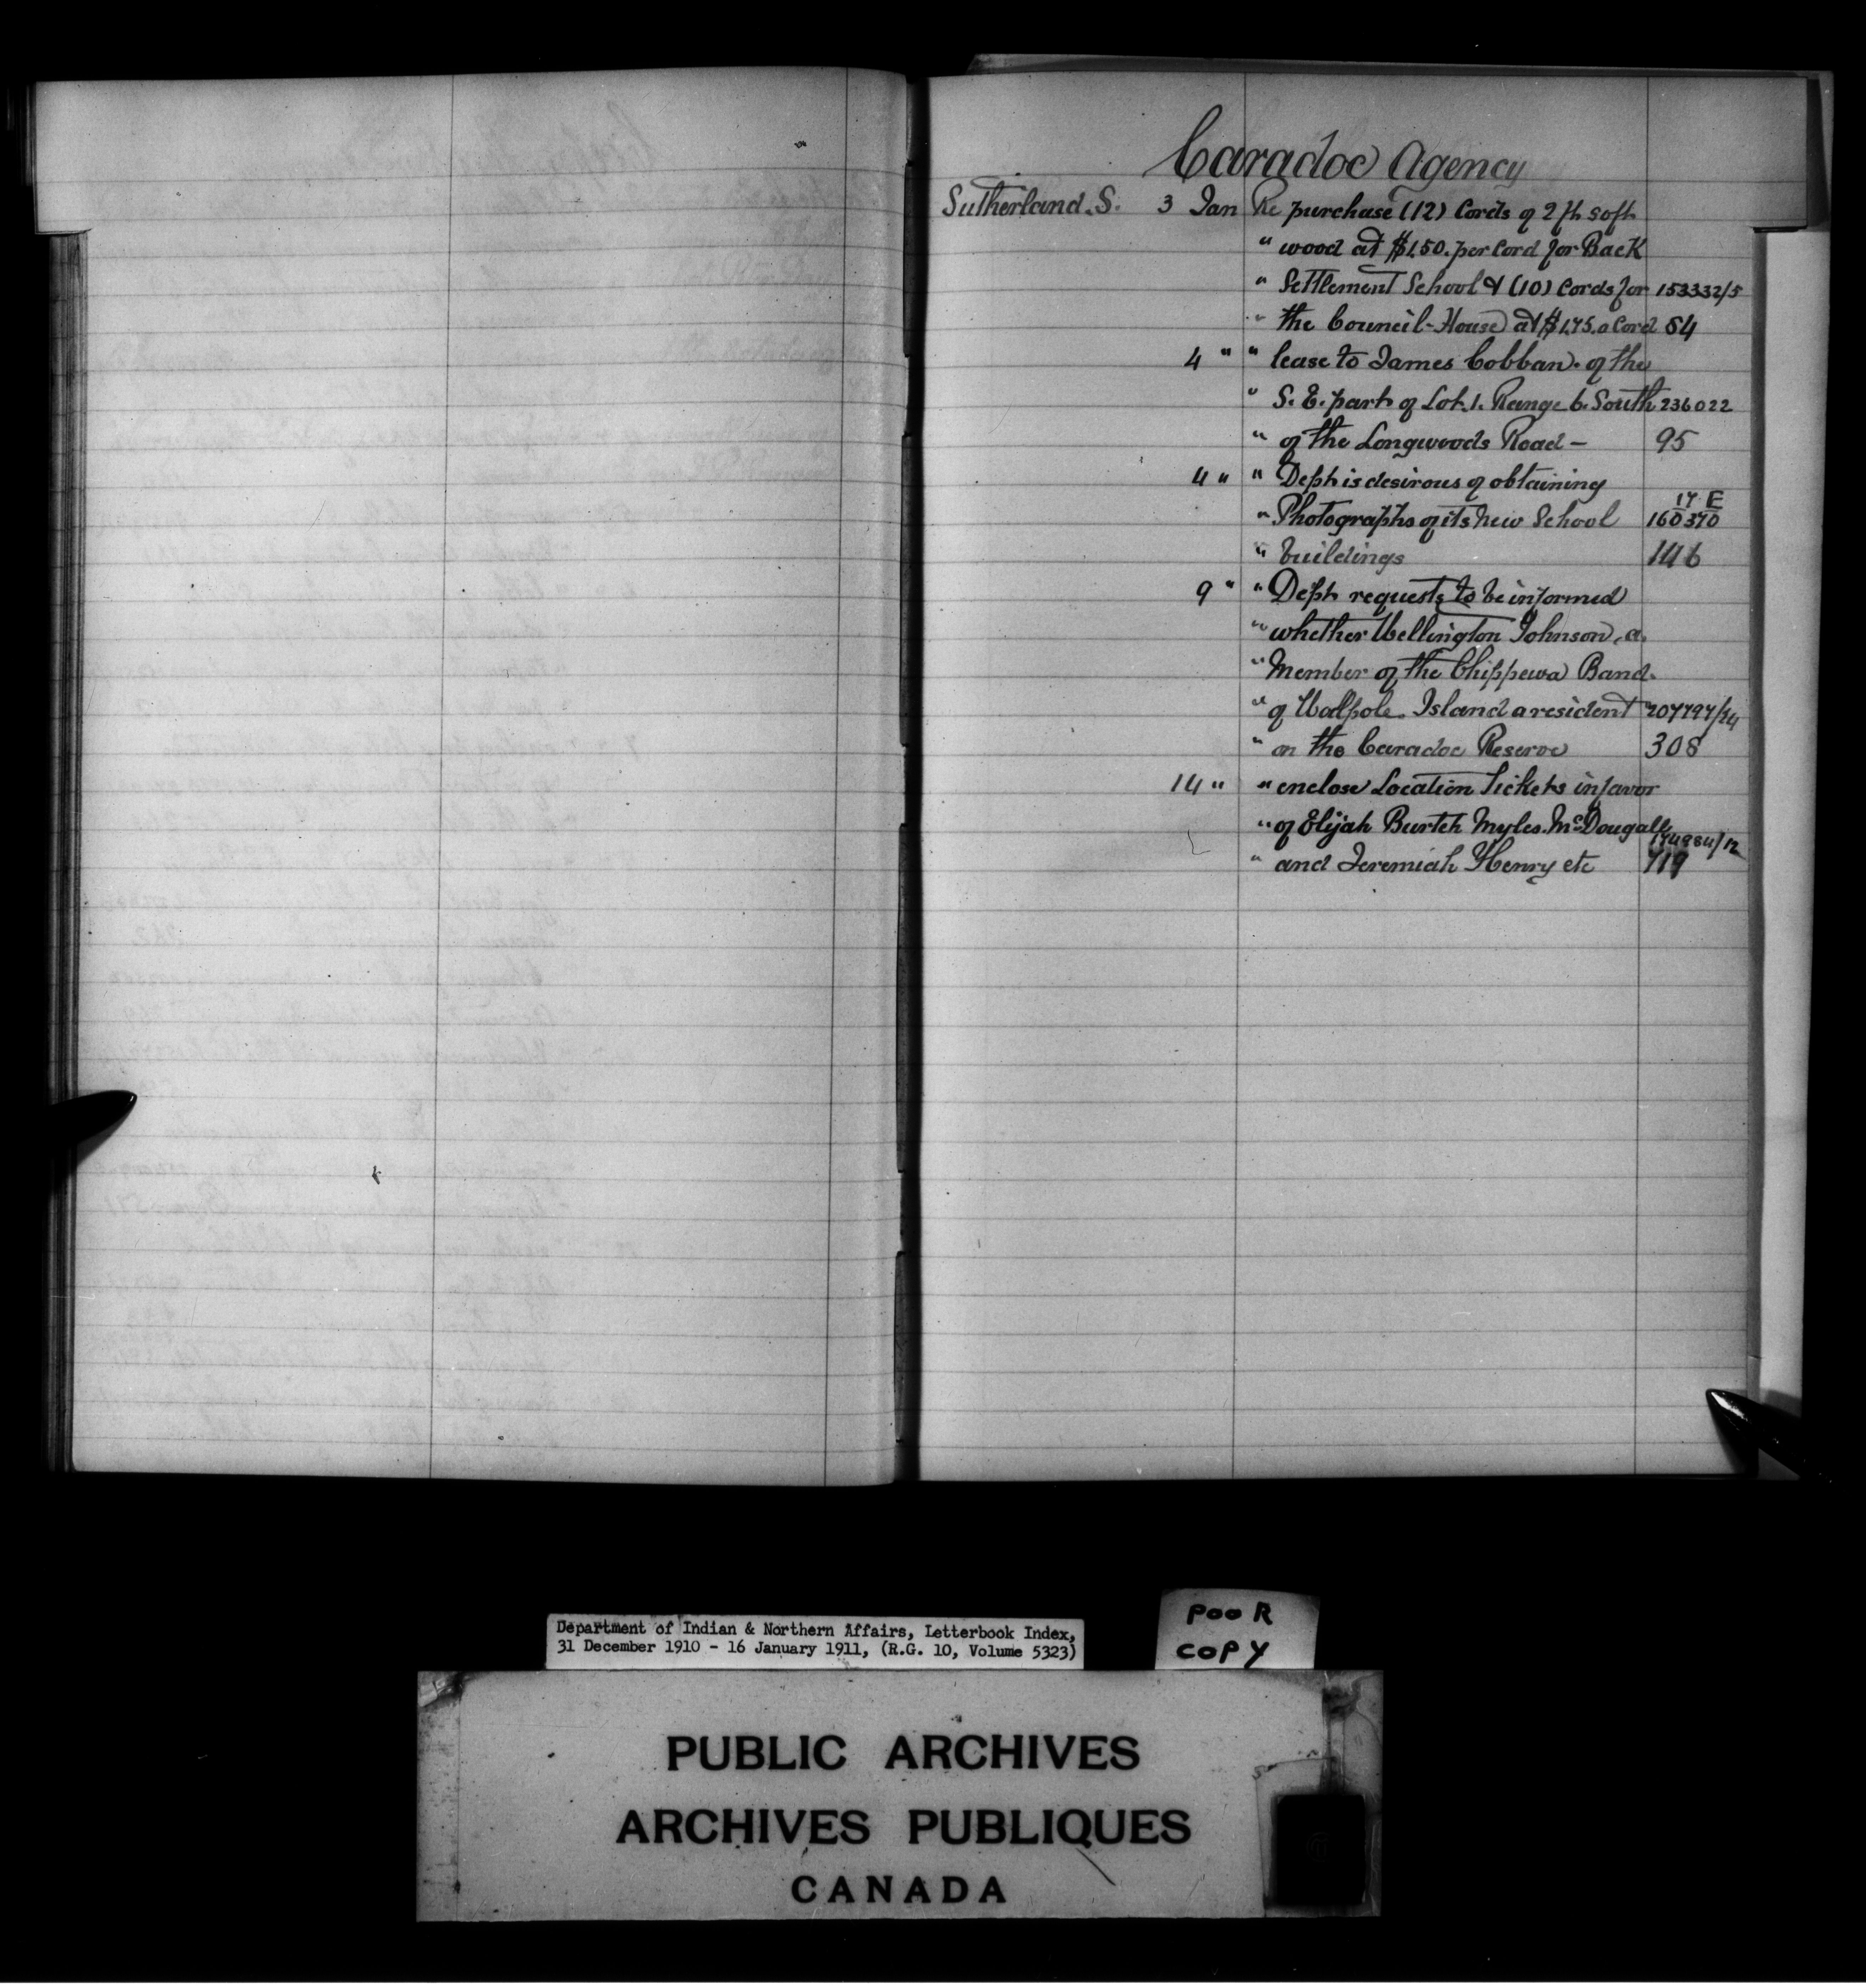 Caradoc Agency
Sutherland. S. 3 Jan Re purchase (12) Cords of 2 ft soft
" wood at $1.50. per Cord for Back
" Settlement School & (10) Cords for 153332/5
" the Council-House at $1.75. a Cord 54
4 " " lease to James Cobban. of the
" S. E. part of Lot. 1. Range 6. South 236022
" of the Longwoods Road - 95
4 " " Dept is desirous of obtaining
17 E
" Photographs of its new School 160370
" buildings 146
9 " " Dept requests to be informed
" whether Wellington Johnson, a.
" Member of the Chippewa Band.
" of Walpole. Island a resident 207797/24
" on the Caradoc Reserve 308
14 " " enclose Location Tickets in favor
" of Elijah Burtch Myles. McDougall
174984/12
" and Jeremiah Henry etc 719
Department of Indian & Northern Affairs, Letterbook Index,
31 December 1910 - 16 January 1911, (R.G. 10, Volume 5323)
POOR
COPY
PUBLIC ARCHIVES
ARCHIVES PUBLIQUES
CANADA